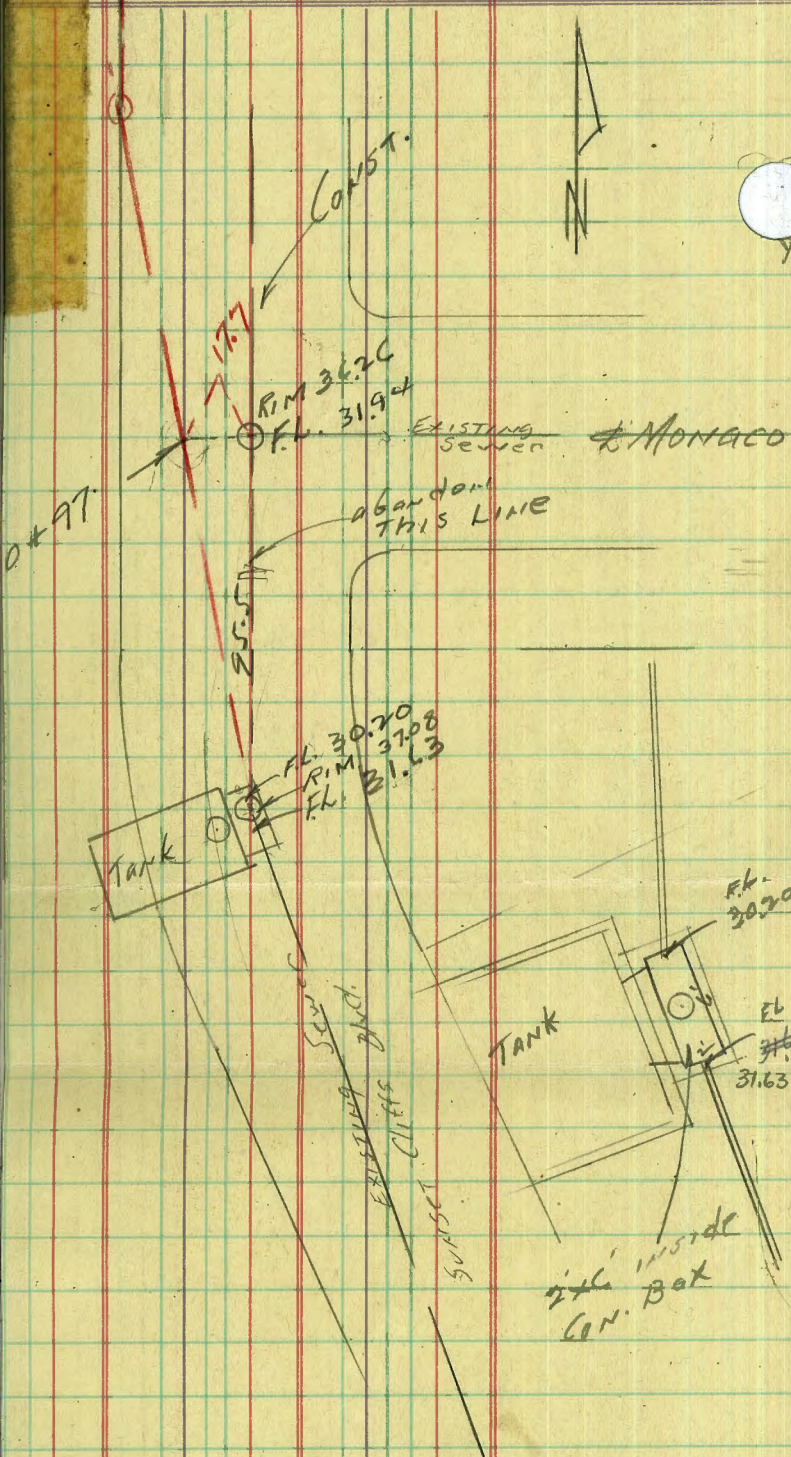 N
CONST.
17.7
RIM 36.26
F.L. 31.94
EXISTING
Sewer
℄ MONACO
0+97.
abandon
THIS LINE
95.5
F.L. 30.20
RIM. 37.08
F.L. 31.63
TANK
EXISTING Sewer
SUNSET Cliffs Blvd.
TANK
F.L.
30.20
6'
2'
F.L.
31.63
2'x6' INSIDE
CON. BOX